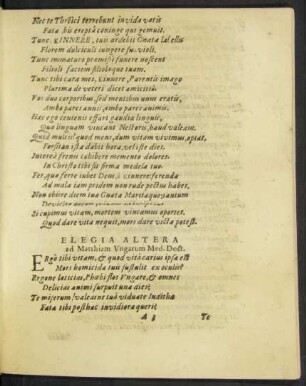 Nec te Tirsici terrebunt invida vatis
Fata bis erepta coniuge qui gemuit.
Tunc KINNERE, tuis ardebis Gnata labellis
Florem dulciculi iungere suaviolii,
Tunc immatura promissi funere noscent
Filioli factem filiolique tuam.
Tunc tibi cara mei, Kinnere, Parentis imago
Plurima de veteri dicet amicitia.
Vos duo corporibus, sed mentibus unus eratis,
Ambo pares annis, ambo pares animis.
Hac ego centenis effari gaudia linguis,
Quo linguam vincant Nestoris, haud valeam.
Quod mulcet quod ment, dum vitam vivimus, aptat,
Forsitan ista dabit hora, vel iste dies.
Interea frenis cohibere memento dolores.
In Christo tibi sit firma medela tuo.
Fer, quae ferre iubet Deus, ô Kinnere; ferenda
Ad mala iam pridem non rude pectus habes,
Non obitre diem tua Gnata Maritaque; tantum
Si cupimus vitam, mortem vincamus oportet.
Quod dare vita nequit, mors dare victa potest.
ELEGIA ALTERA
ad Matthiam Vngarum Med. Doct.
ERgo tibi vitam, & quod vita carius ipsa est
Mors homicida tuis sustulit ex oculis?
Ergone laticias, Phoebi flos Vngare, & omnes
Delicias animi surpuit una dies?
Te miserum! valeasne tua viduare Inditha
Fata tibi posthac invidiora querit
A 3 Te